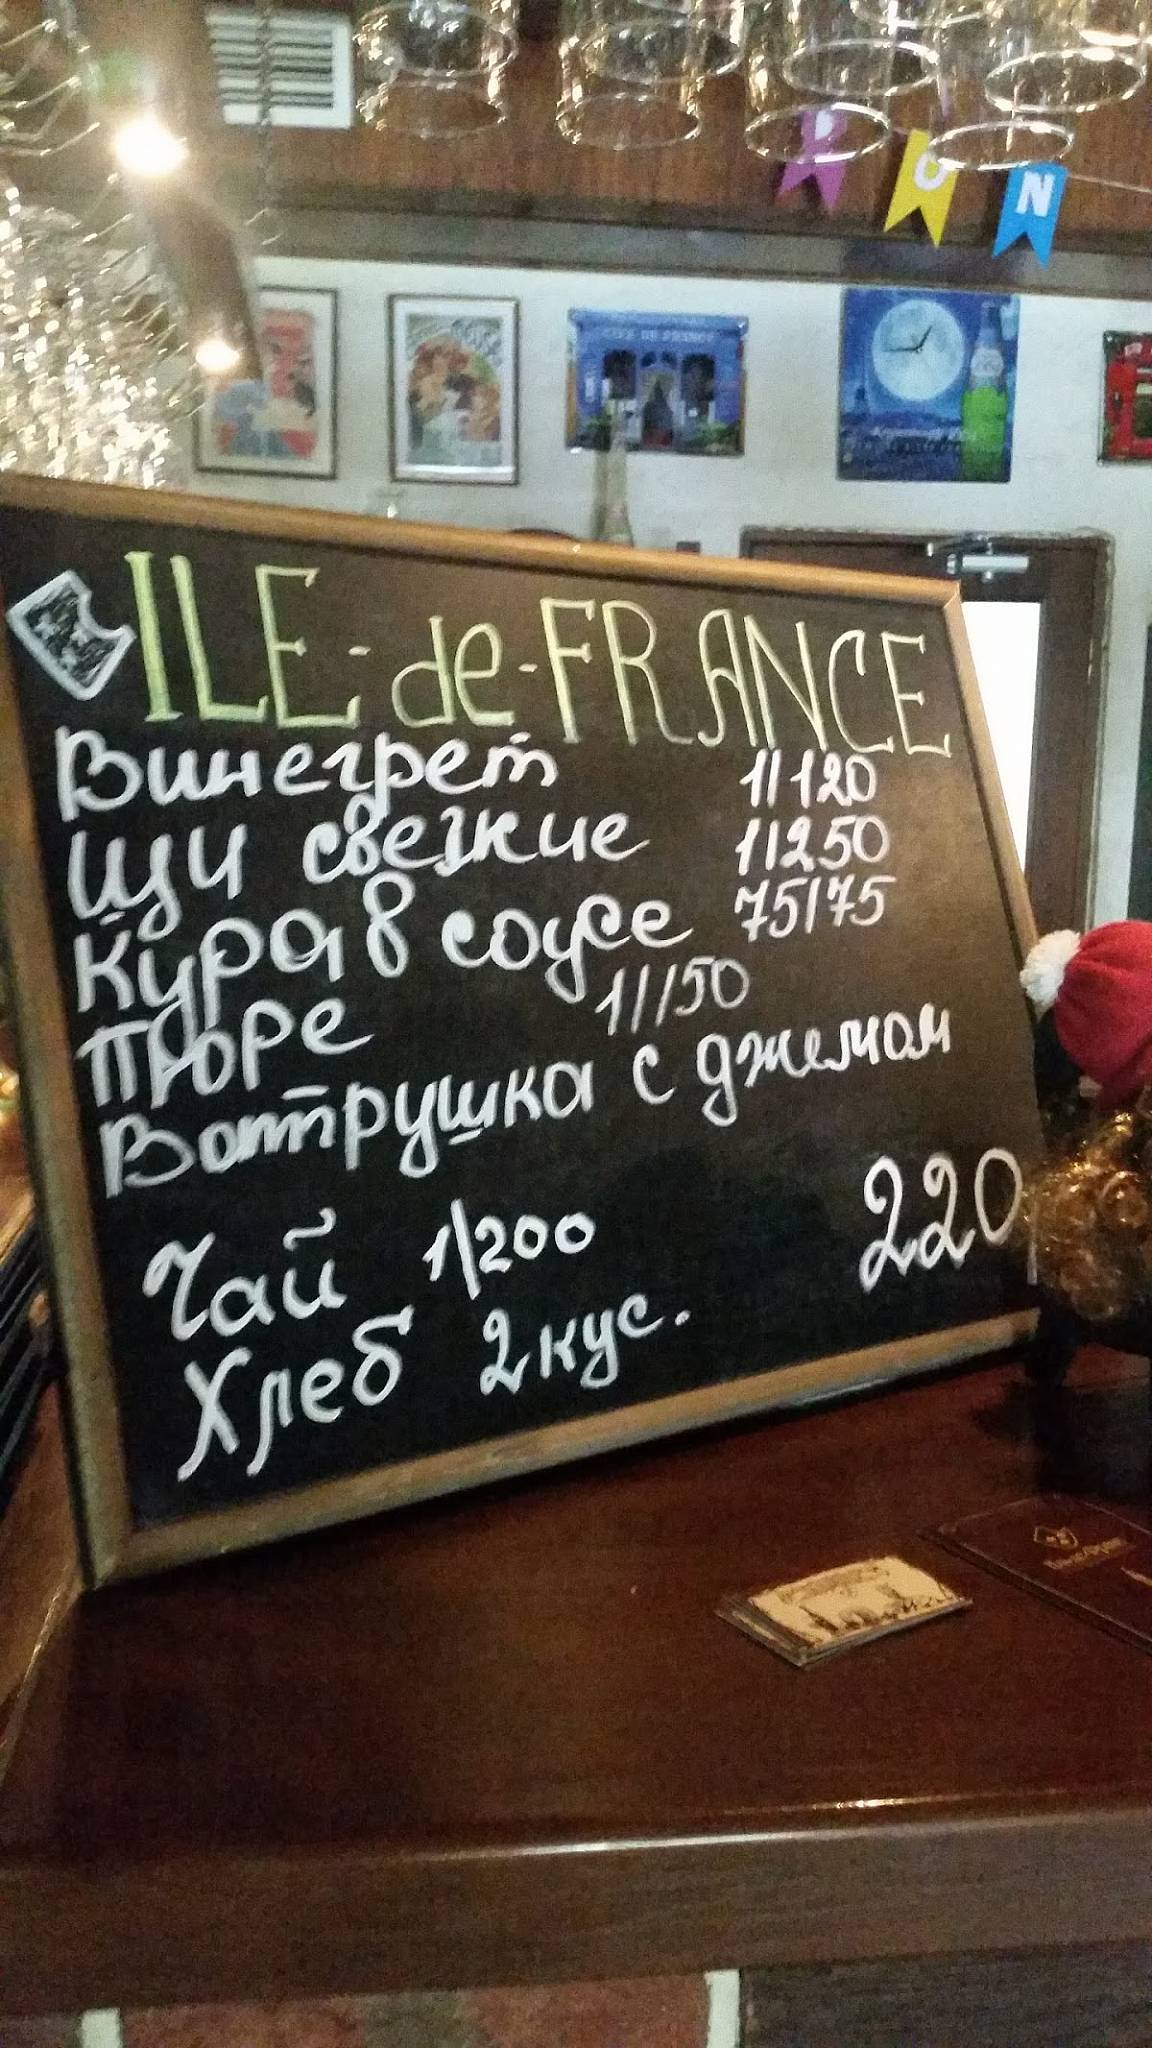 P O N
ILE-de-FRANCE
Винегрет 1/120
Щи свежие 1/250
Кура в соусе 75/75
Пюре 1/150
Ватрушка с джемом
Чай 1/200 220
Хлеб 2 кус.